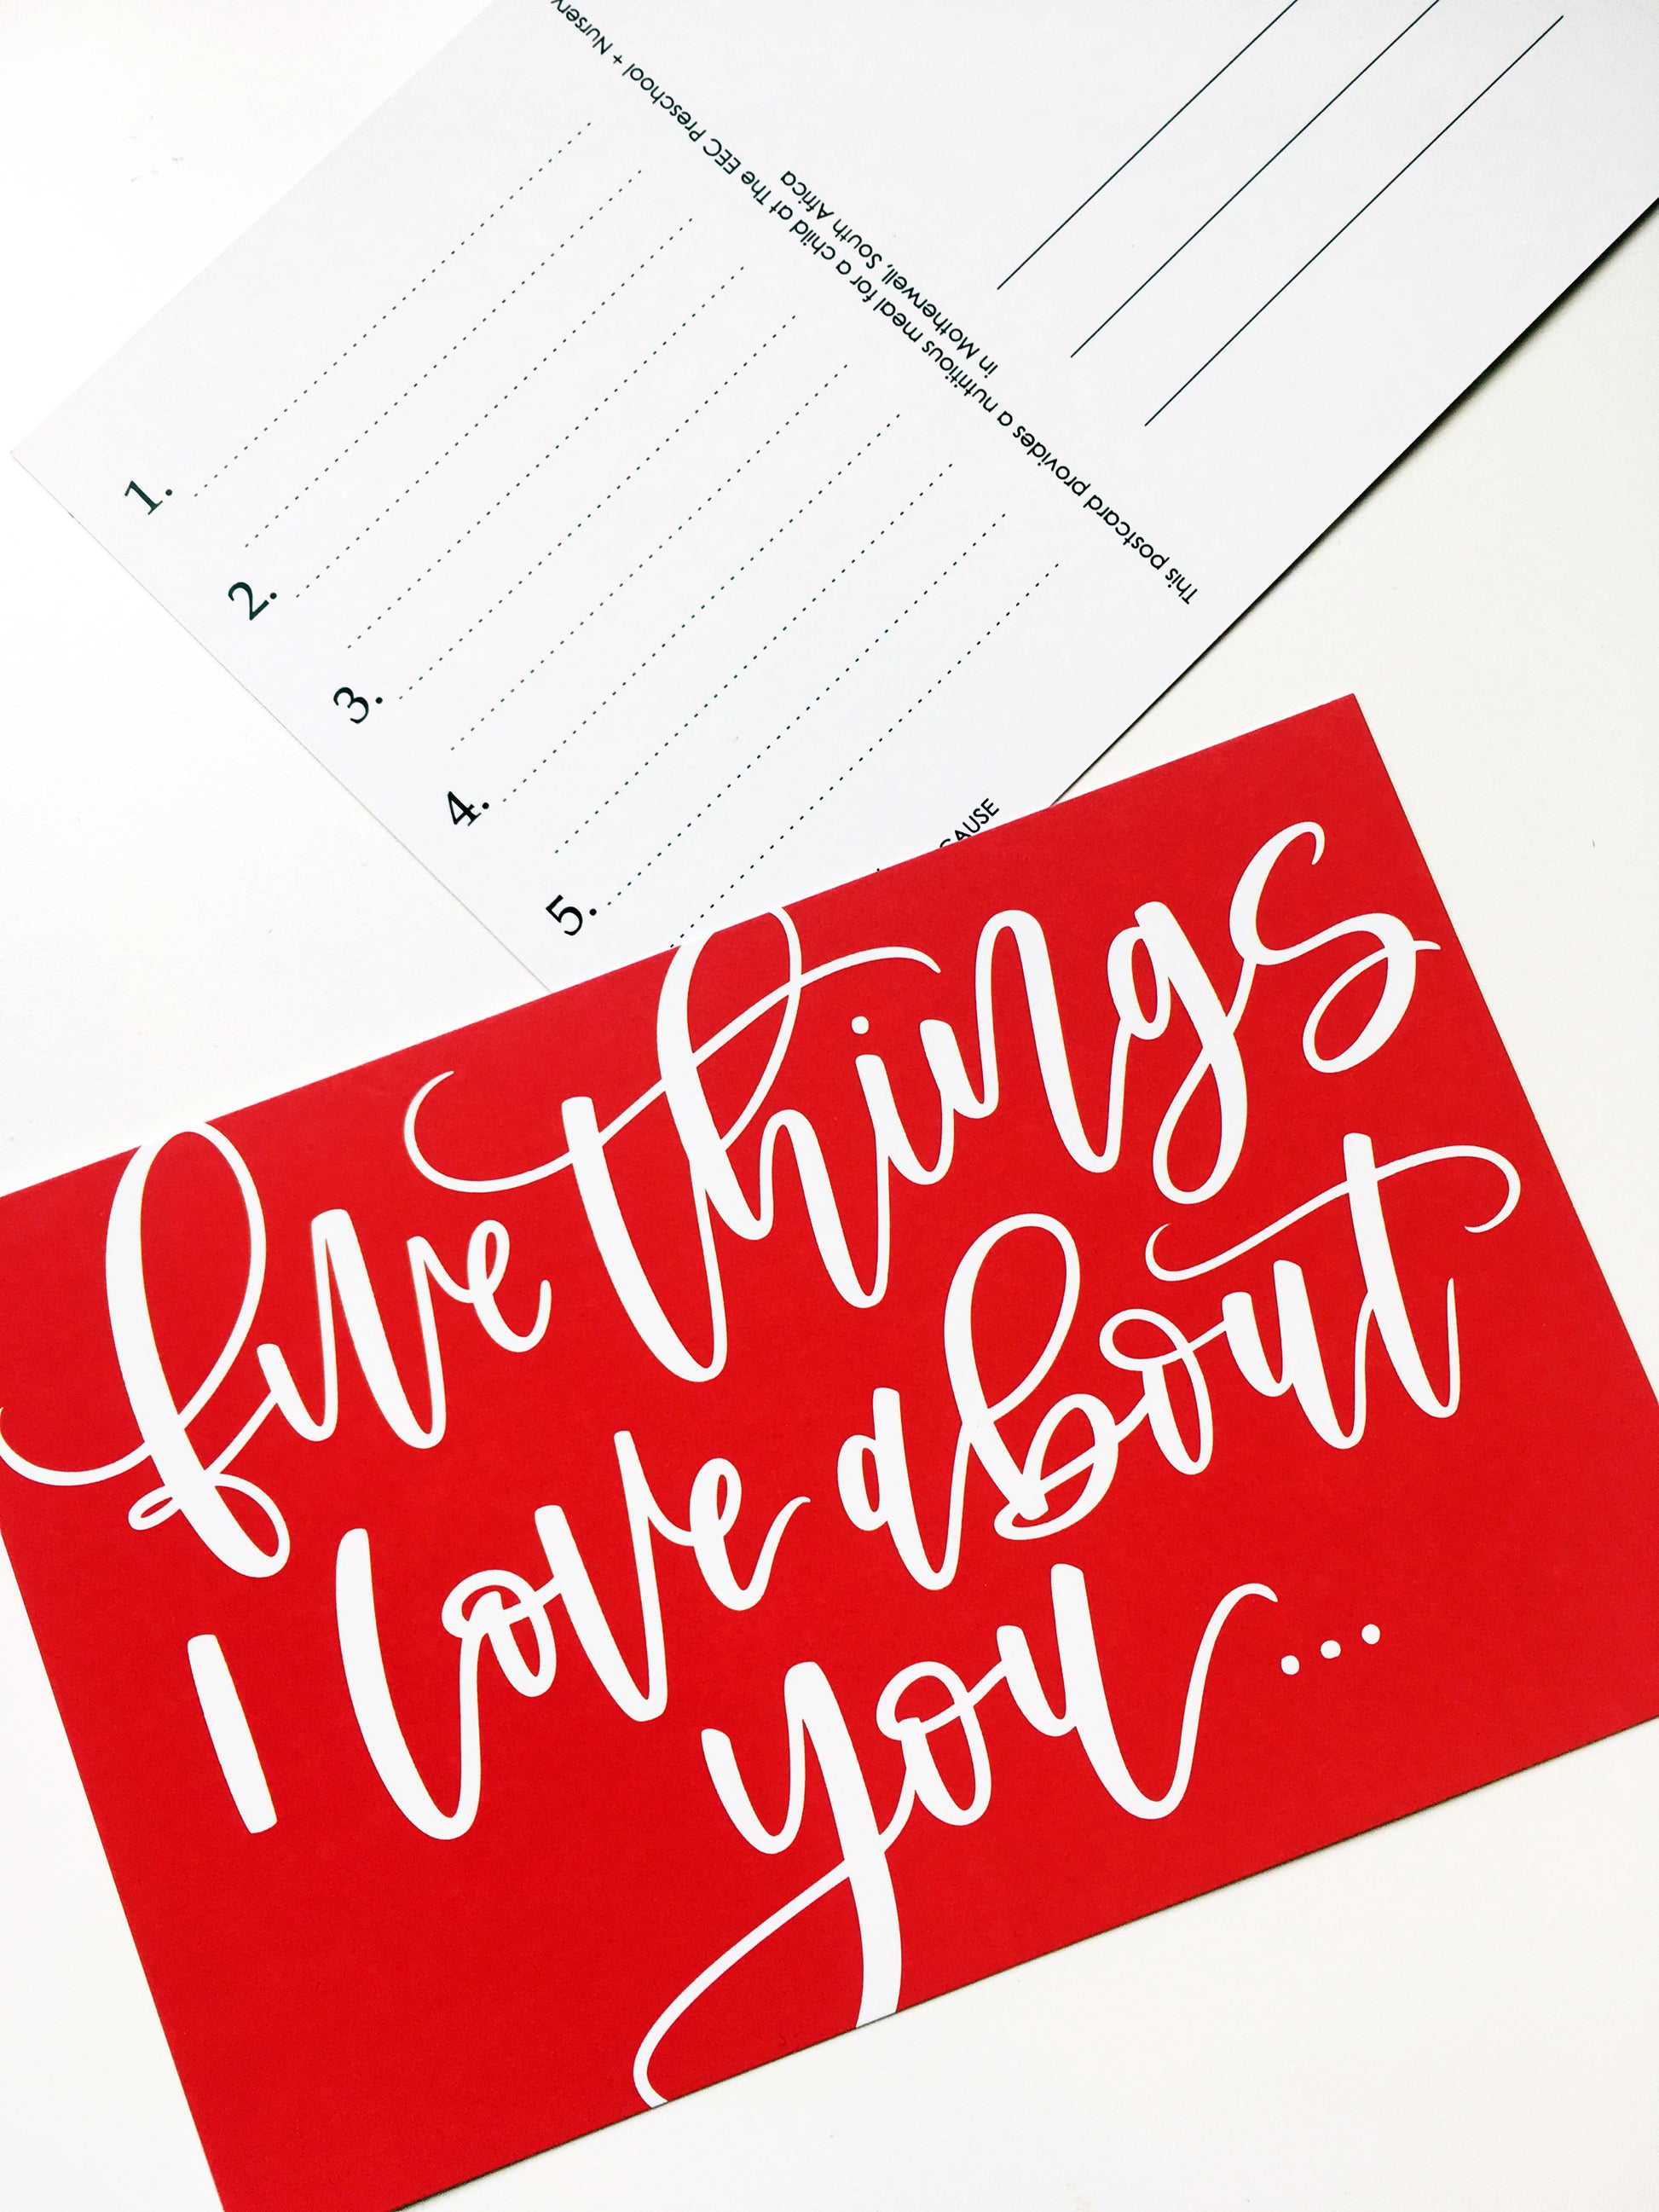 1.
2.
3.
4.
5.
This postcard provides a nutritious meal for a child at The EEC Preschool + Nursery
in Motherwell, South Africa
five things
I love about
you...